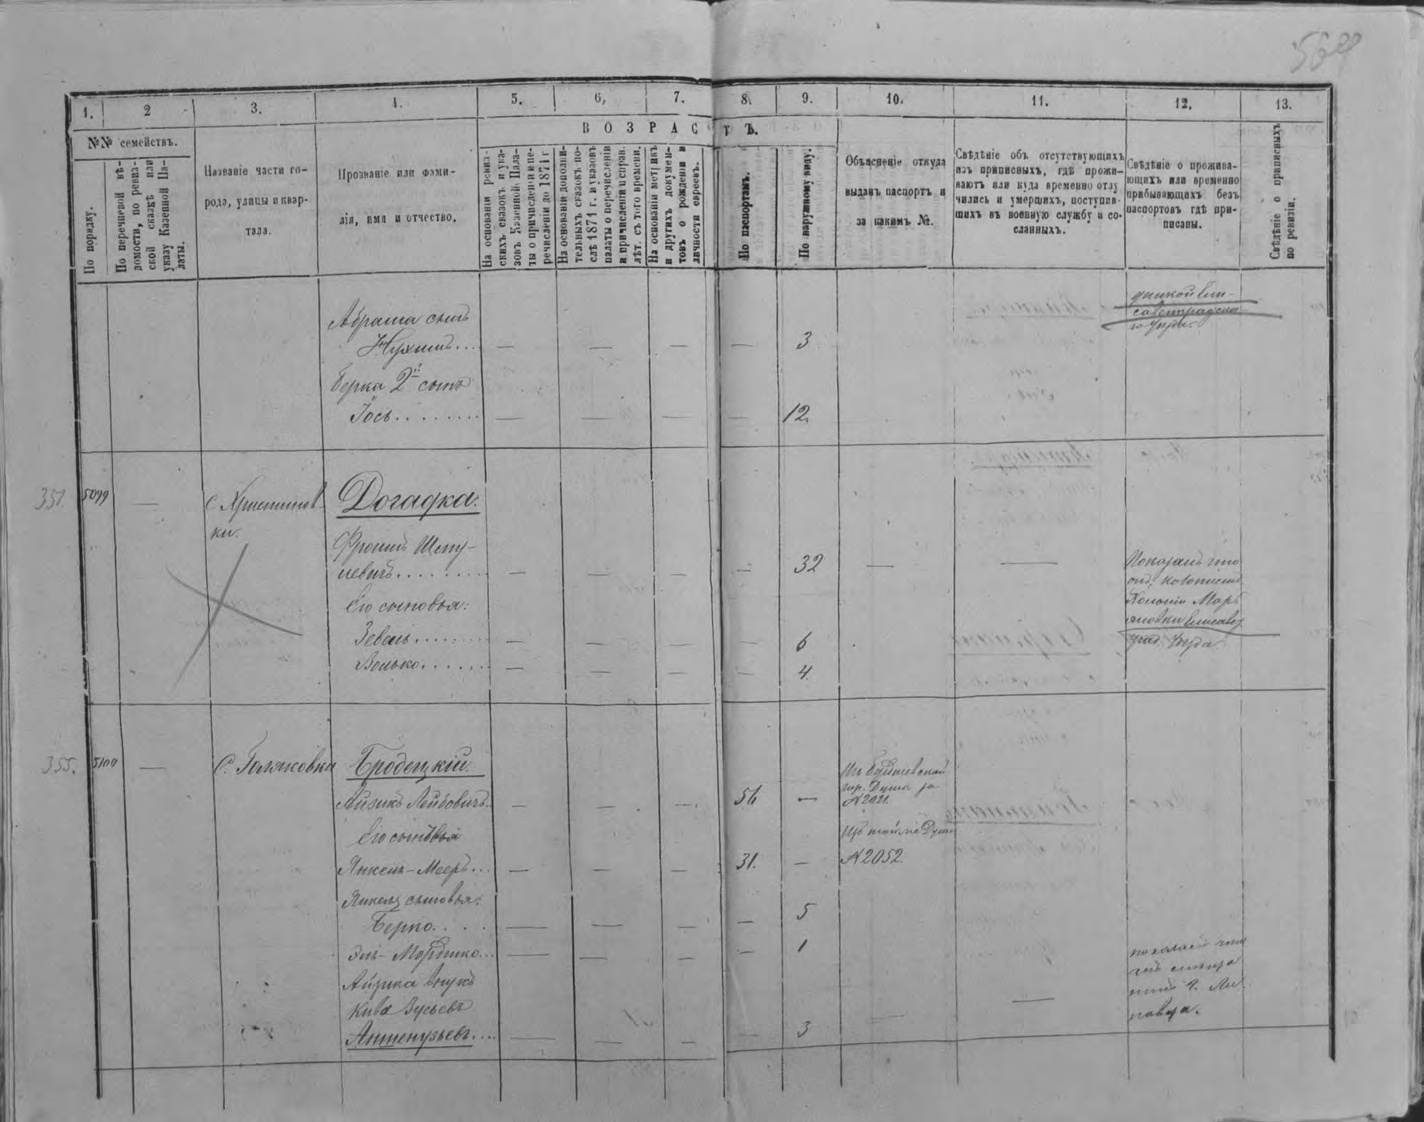 1.
2
3.
4.
5.
6,
7.
8.
9.
10.
11.
12.
13.
№№ семействъ.
ВОЗРАСТЪ.
По порядку.
По перечневой вѣ-
домости, по ревиз-
ской сказкѣ или
указу Казенной Па-
латы.
Названіе части го-
рода, улицы и квар-
тала.
Прозваніе или фами-
лія, имя и отчество.
На основаніи ревиз-
скихъ сказокъ и ука-
зовъ Казенной Пала-
ты о причисленіи и пе-
речисленіи до 1874 г.
На основаніи дополни-
тельныхъ сказокъ по-
слѣ 1874 г. и указовъ
палаты о перечисленіи
и причисленіи и справ.
лѣт. съ того времени.
На основаніи метрикъ
и другихъ докумен-
товъ о рожденіи и
личности евреевъ.
По паспортамъ.
По наружному виду.
Объясненіе откуда
выданъ паспортъ и
за какимъ №.
Свѣдѣніе объ отсутствующихъ
изъ приписныхъ, гдѣ прожи-
ваютъ или куда временно отлу
чились и умершихъ, поступив-
шихъ въ военную службу и со-
сланныхъ.
Свѣдѣніе о прожива-
ющихъ или временно
прибывающихъ безъ
паспортовъ гдѣ при-
писаны.
Свѣдѣніе о приписныхъ
по ревизіи.
Абрама сынъ
Нухимъ... — — — — 3
Берка 2й сынъ
Іось........ — — — — 12
5099 — с Христинов-
ки.
Догадка.
Фроимъ Шму-
левичъ........ — — — — 32 — —
Его сыновья:
Зевель....... — — — — 6
Волько....... — — — — 4.
Показалъ что
онъ колонистъ
Колоніи
Елисавет
град. Уѣзда.
355. 5100 — С. Поляковка
Бродецкій.
Айзикъ Лейбовичъ. — — — 56 —
Изъ
гор. Думы за
№ 2021.
Его сыновья
Янкель-Мееръ... — — — 31. —
Изъ той же Думы
№ 2052.
Янкеля сыновья:
Берко.... — — — — 5
Эль-Мордко... — — — — 1
Айзика внукъ
Кива Зусьевъ
.... — — — — 3 — —
показалъ что